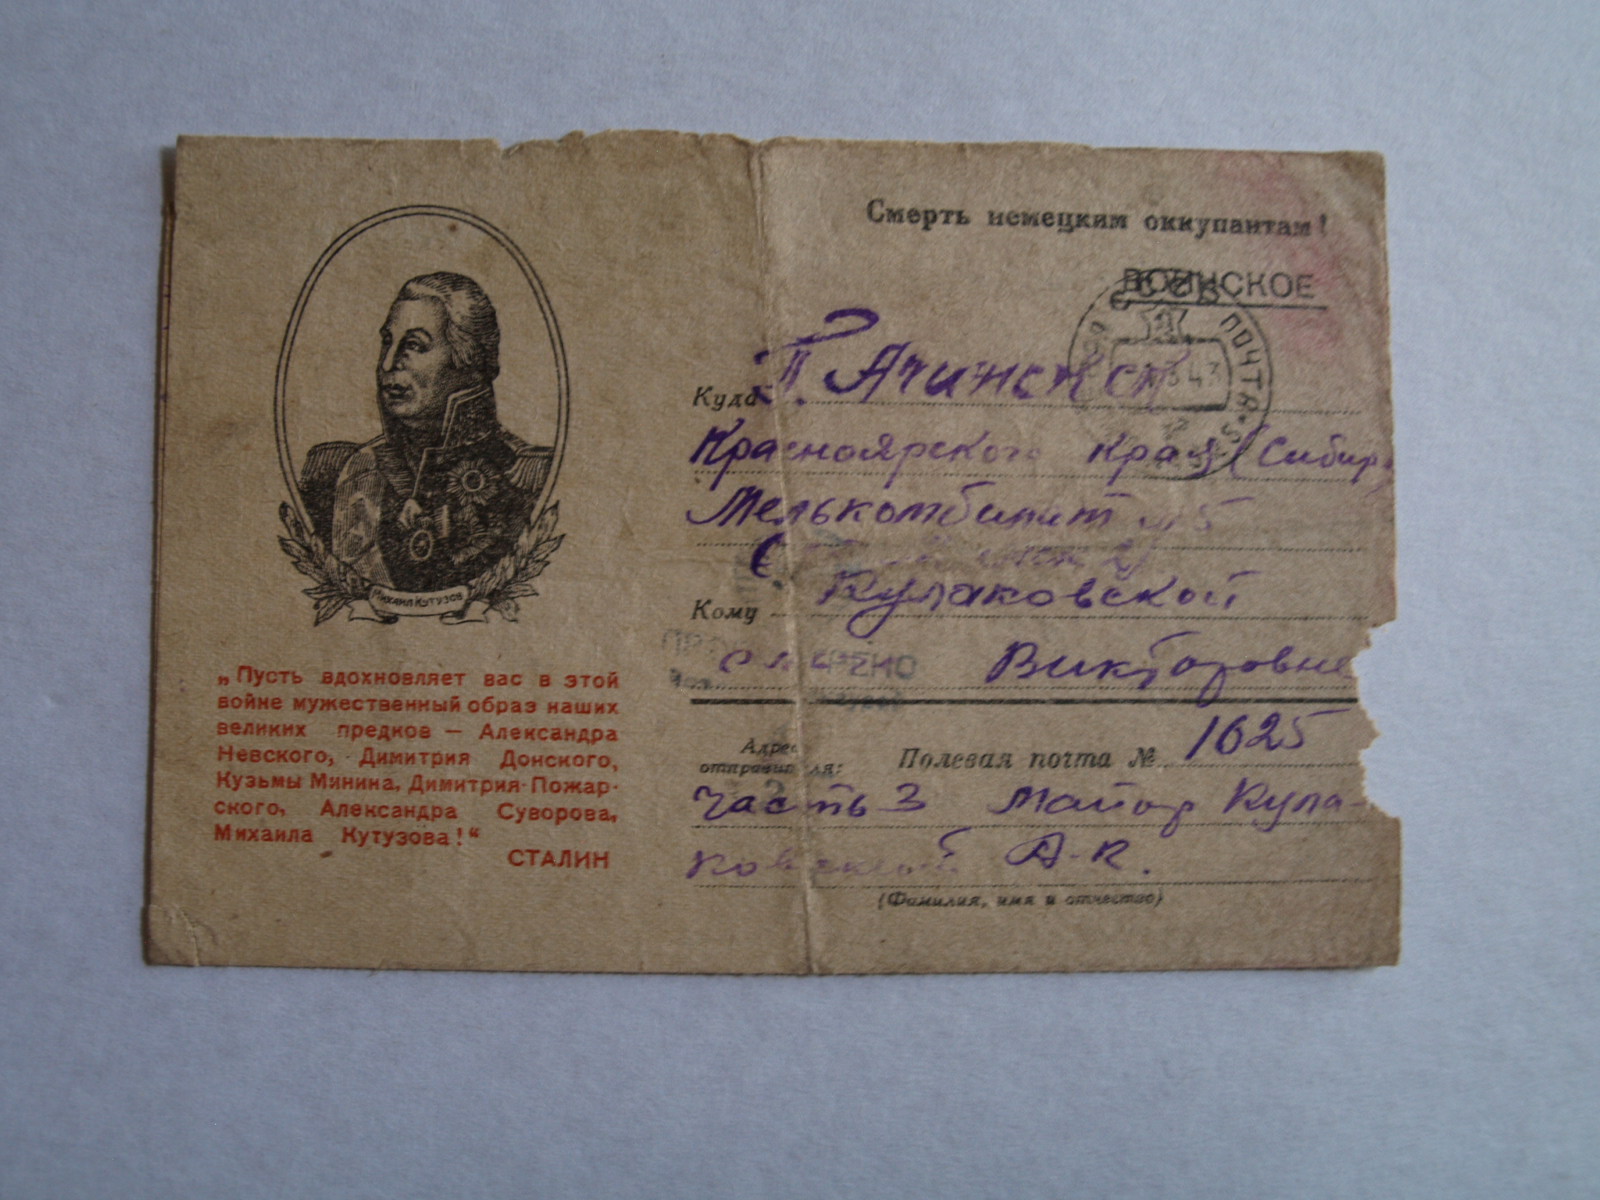 МИХАИЛ КУТУЗОВ
„Пусть вдохновляет вас в этой
войне мужественный образ наших
великих предков — Александра
Невского, Димитрия Донского,
Кузьмы Минина, Димитрия Пожар-
ского, Александра Суворова,
Михаила Кутузова!“
СТАЛИН
Смерть немецким оккупантам!
ВОИНСКОЕ
ПОЧТА
Куда Г. Ачинск
Красноярского Края (Сибирь)
Мелькомбинат 5
Кому Кулаковской
Викторовне
Адрес отправителя: Полевая почта № 1625
часть 3 Майор Кула-
ковский А. К.
(Фамилия, имя и отчество)